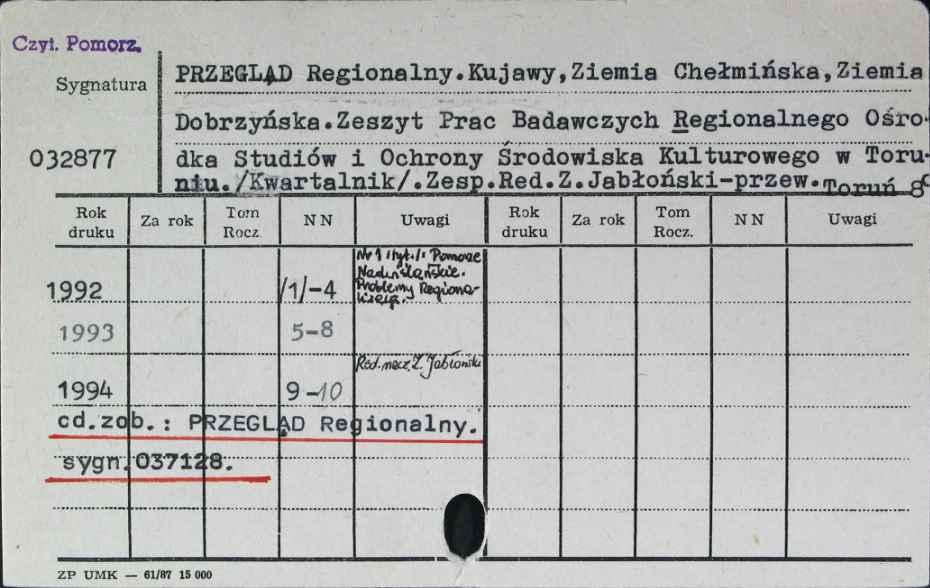 Czyt. Pomorz.
Sygnatura
032877
PRZEGLĄD Regionalny.Kujawy,Ziemia Chełmińska,Ziemia
Dobrzyńska.Zeszyt Prac Badawczych Regionalnego Ośro-
dka Studiów i Ochrony Środowiska Kulturowego w Toru-
niu./Kwartalnik/.Zesp.Red.Z.Jabłoński-przew.Toruń 8°
Rok druku Za rok Tom Rocz. NN Uwagi Rok druku Za rok Tom Rocz. NN Uwagi
Nr 1 /tyt./: Pomorze
Nadwiślańskie.
1992 /1/-4 Problemy Regiona-
lizacji.
1993 5-8
Red. nacz. Z. Jabłoński
1994 9-10
cd.zob.: PRZEGLĄD Regionalny.
sygn.037128.
ZP UMK — 61/87 15 000